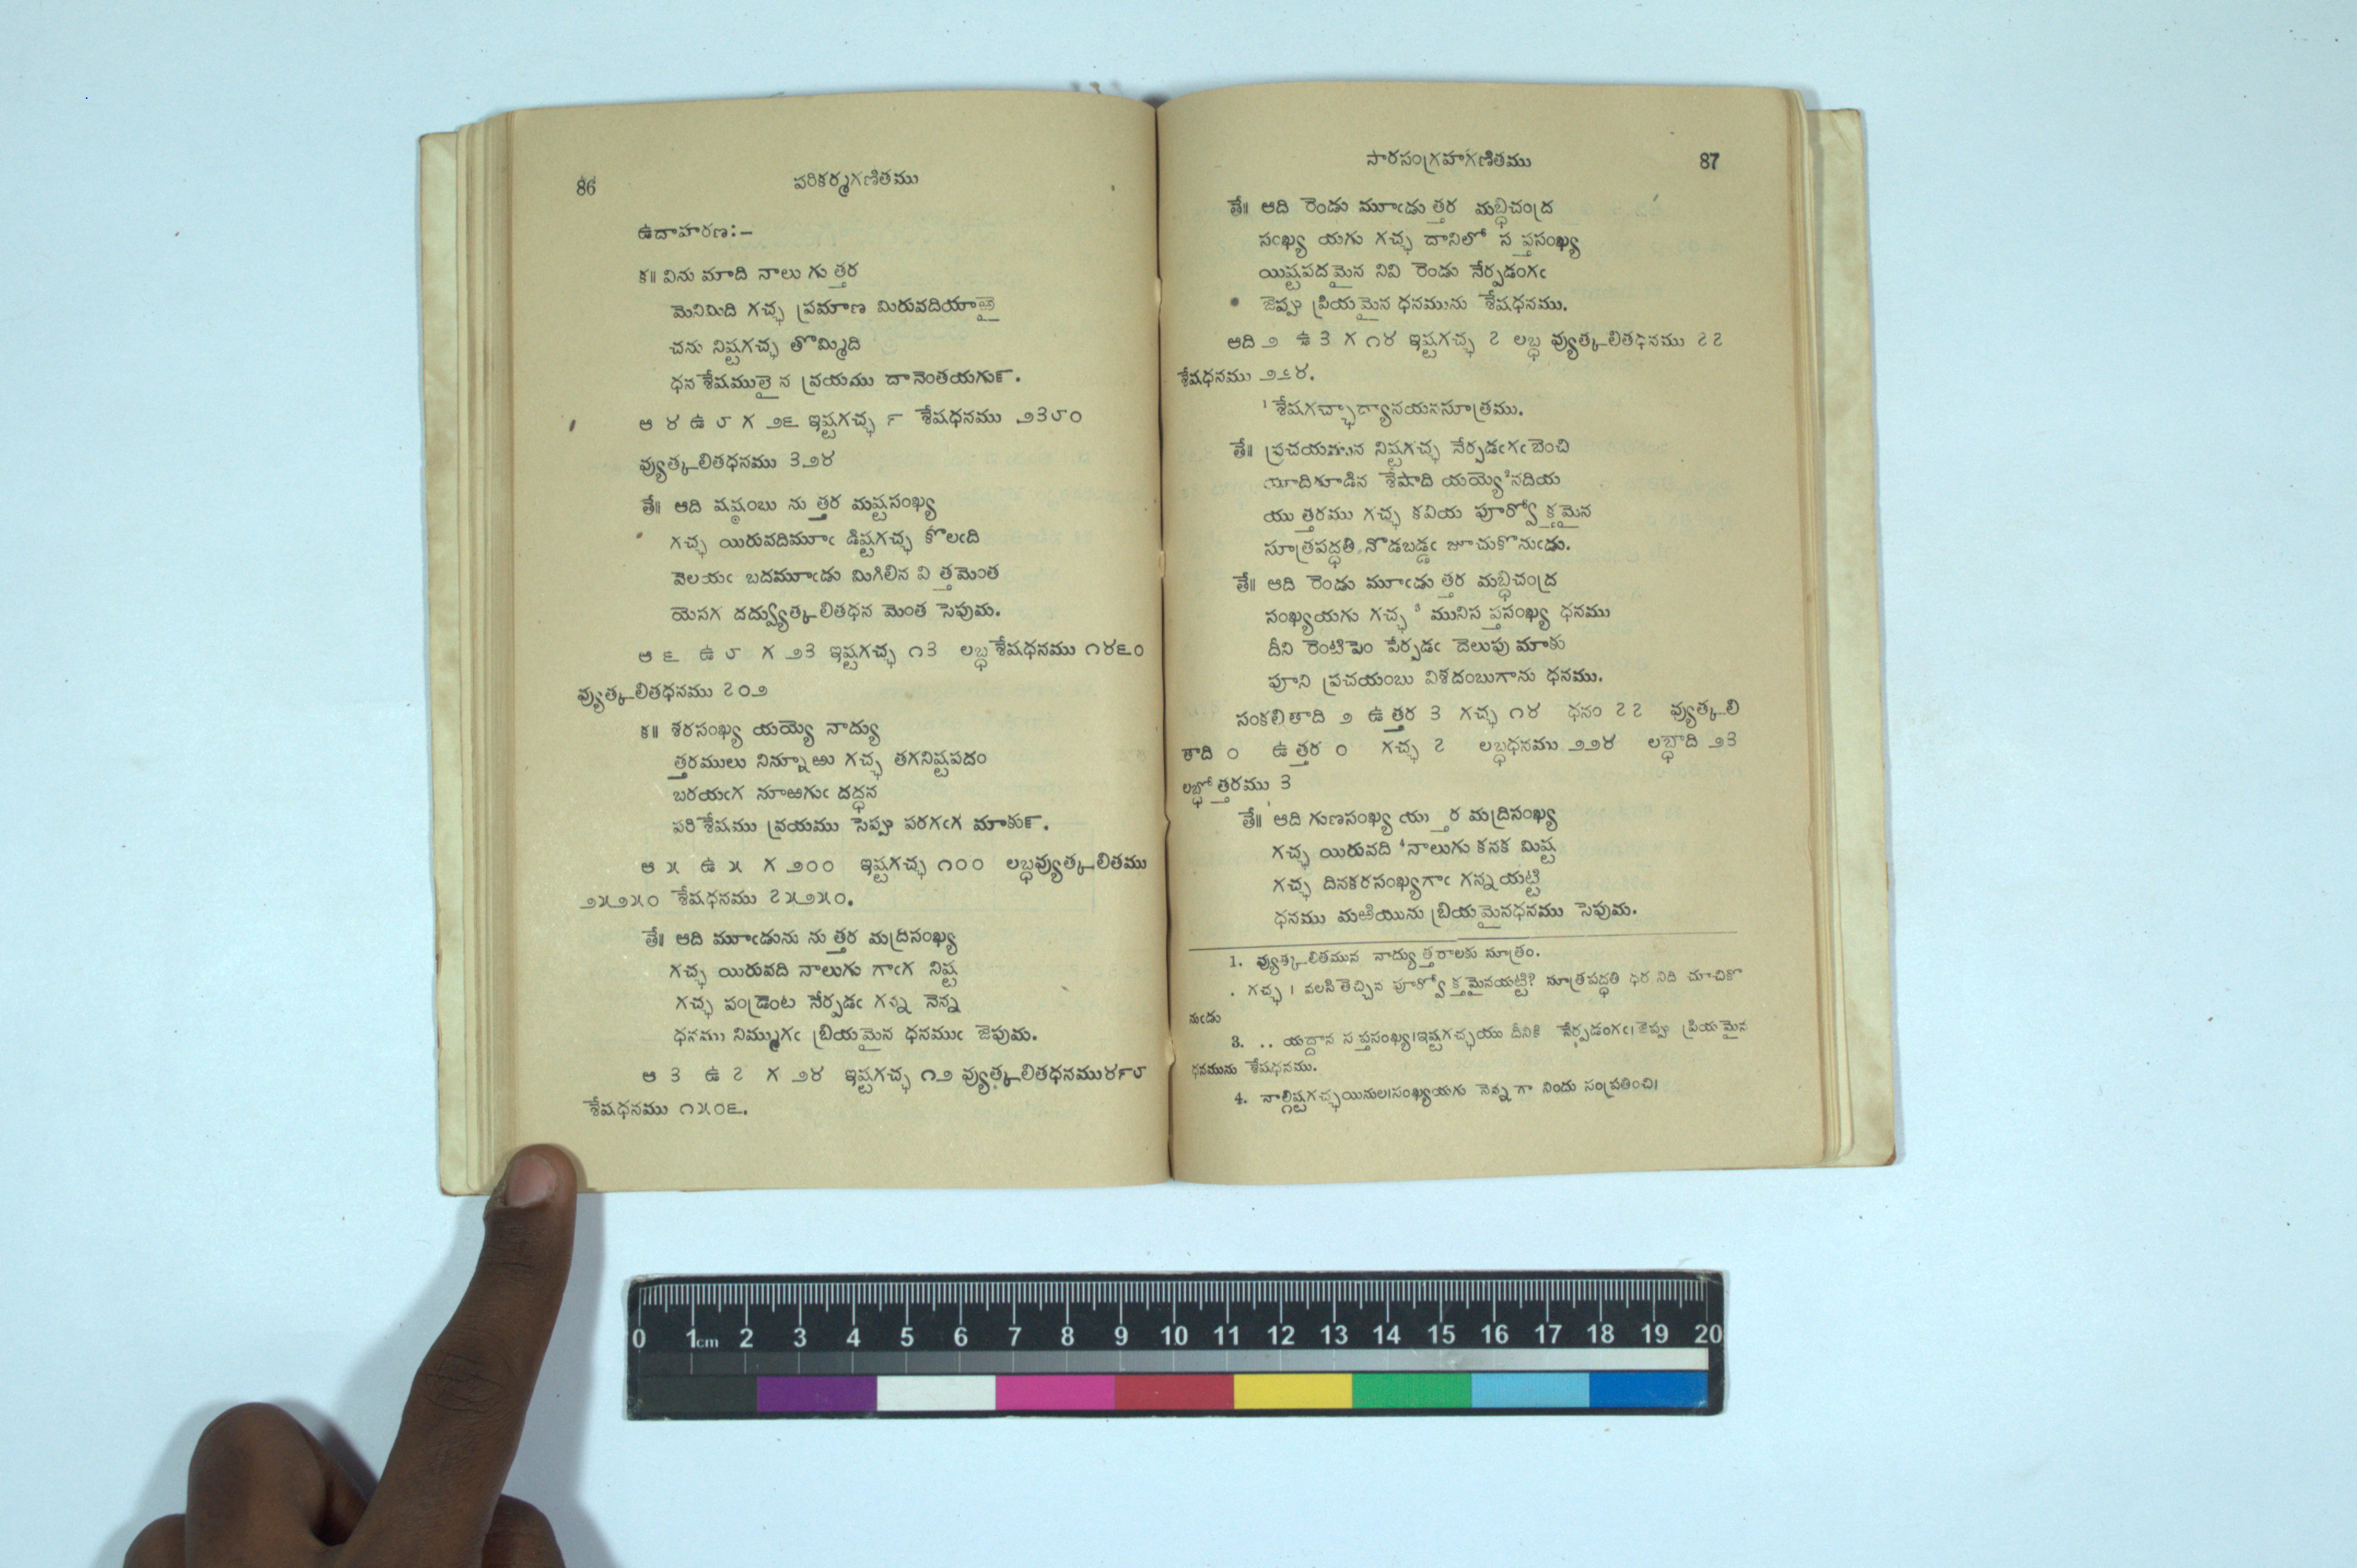 86
పరికర్మగణితము
ఉదాహరణ:—
క॥ విను మాది నాలు గుత్తర
మెనిమిది గచ్ఛ ప్రమాణ మిరువదియాఱై
చను నిష్టగచ్ఛ తొమ్మిది
ధన శేషములై న వ్రయము దానెంతయగు౯.
ఆ ౪ ఉ ౮ గ ౨౬ ఇష్టగచ్ఛ ౯ శేషధనము ౨౩౮౦
వ్యుత్కలితధనము ౩౨౪
తే॥ ఆది షష్ఠంబు నుత్తర మష్టసంఖ్య
గచ్ఛ యిరువదిమూఁ డిష్టగచ్ఛ కొలఁది
వెలయఁ బదమూఁడు మిగిలిన విత్తమెంత
యెసగ దద్వ్యుత్కలితధన మెంత సెపుమ.
ఆ ౬ ఉ ౮ గ ౨౩ ఇష్టగచ్ఛ ౧౩ లబ్ధ శేషధనము ౧౪౬౦
వ్యుత్కలితధనము ౭౦౨
క॥ శరసంఖ్య యయ్యె నాద్యు
త్తరములు నిన్నూఱు గచ్ఛ తగనిష్టపదం
బరయఁగ నూఱగుఁ దద్ధన
పరి శేషము వ్రయము సెప్పు పరగఁగ మాకు౯.
ఆ ౫ ఉ ౫ గ ౨౦౦ ఇష్టగచ్ఛ ౧౦౦ లబ్ధవ్యుత్కలితము
౨౫౨౫౦ శేషధనము ౭౫౨౫౦.
తే॥ ఆది మూఁడును నుత్తర మద్రిసంఖ్య
గచ్ఛ యిరువది నాలుగు గాఁగ నిష్ట
గచ్ఛ పండ్రెంట నేర్పడఁ గన్న నెన్న
ధనము నిమ్ముగఁ బ్రియమైన ధనముఁ జెపుమ.
ఆ ౩ ఉ ౭ గ ౨౪ ఇష్టగచ్ఛ ౧౨ వ్యుత్కలితధనము౪౯౮
శేషధనము ౧౫౦౬.
సారసంగ్రహగణితము
87
తే॥ ఆది రెండు మూఁడుత్తర మబ్ధిచంద్ర
సంఖ్య యగు గచ్ఛ దానిలో సప్తసంఖ్య
యిష్టపదమైన నివి రెండు నేర్పడంగఁ
జెప్పు ప్రియమైన ధనమును శేషధనము.
ఆది ౨ ఉ ౩ గ ౧౪ ఇష్టగచ్ఛ ౭ లబ్ధ వ్యుత్కలితధనము ౭౭
శేషధనము ౨౨౪.
¹ శేషగచ్ఛాద్యానయనసూత్రము.
తే॥ ప్రచయమున నిష్టగచ్ఛ నేర్పడఁగఁ బెంచి
యాదిగూడిన శేషాది యయ్యె²నదియ
యుత్తరము గచ్ఛ కవియ పూర్వోక్తమైన
సూత్రపద్ధతి నొడబడ్డఁ జూచుకొనుఁడు.
తే॥ ఆది రెండు మూఁడుత్తర మబ్ధిచంద్ర
సంఖ్యయగు గచ్ఛ ³ మునిసప్తసంఖ్య ధనము
దీని రెంటిపెం పేర్పడఁ దెలుపు మాకు
పూని ప్రచయంబు విశదంబుగాను ధనము.
సంకలితాది ౨ ఉత్తర ౩ గచ్ఛ ౧౪ ధనం ౭౭ వ్యుత్కలి
తాది ౦ ఉత్తర ౦ గచ్ఛ ౭ లబ్ధధనము ౨౨౪ లబ్ధాది ౨౩
లబ్ధోత్తరము ౩
తే॥ ఆది గుణసంఖ్య యుత్తర మద్రిసంఖ్య
గచ్ఛ యిరువది ⁴నాలుగు కనక మిష్ట
గచ్ఛ దినకరసంఖ్యగాఁ గన్న యట్టి
ధనము మఱియును బ్రియమైనధనము సెపుమ.
1. వ్యుత్కలితమున నాద్యుత్తరాలకు సూత్రం.
. గచ్ఛ । వలసి తెచ్చిన పూర్వోక్తమైనయట్టి? సూత్రపద్ధతి ధర నిది చూచికొ
నుఁడు
3. .. యద్దాన సప్తసంఖ్య।ఇష్టగచ్ఛయు దీనికి నేర్పడంగఁ।జెప్పు ప్రియమైన
ధనమును శేషధనము.
4. నాల్గిష్టగచ్ఛయినుల।సంఖ్యయగు నెన్న గా నిందు సంప్రతించి।
0 1cm 2 3 4 5 6 7 8 9 10 11 12 13 14 15 16 17 18 19 20